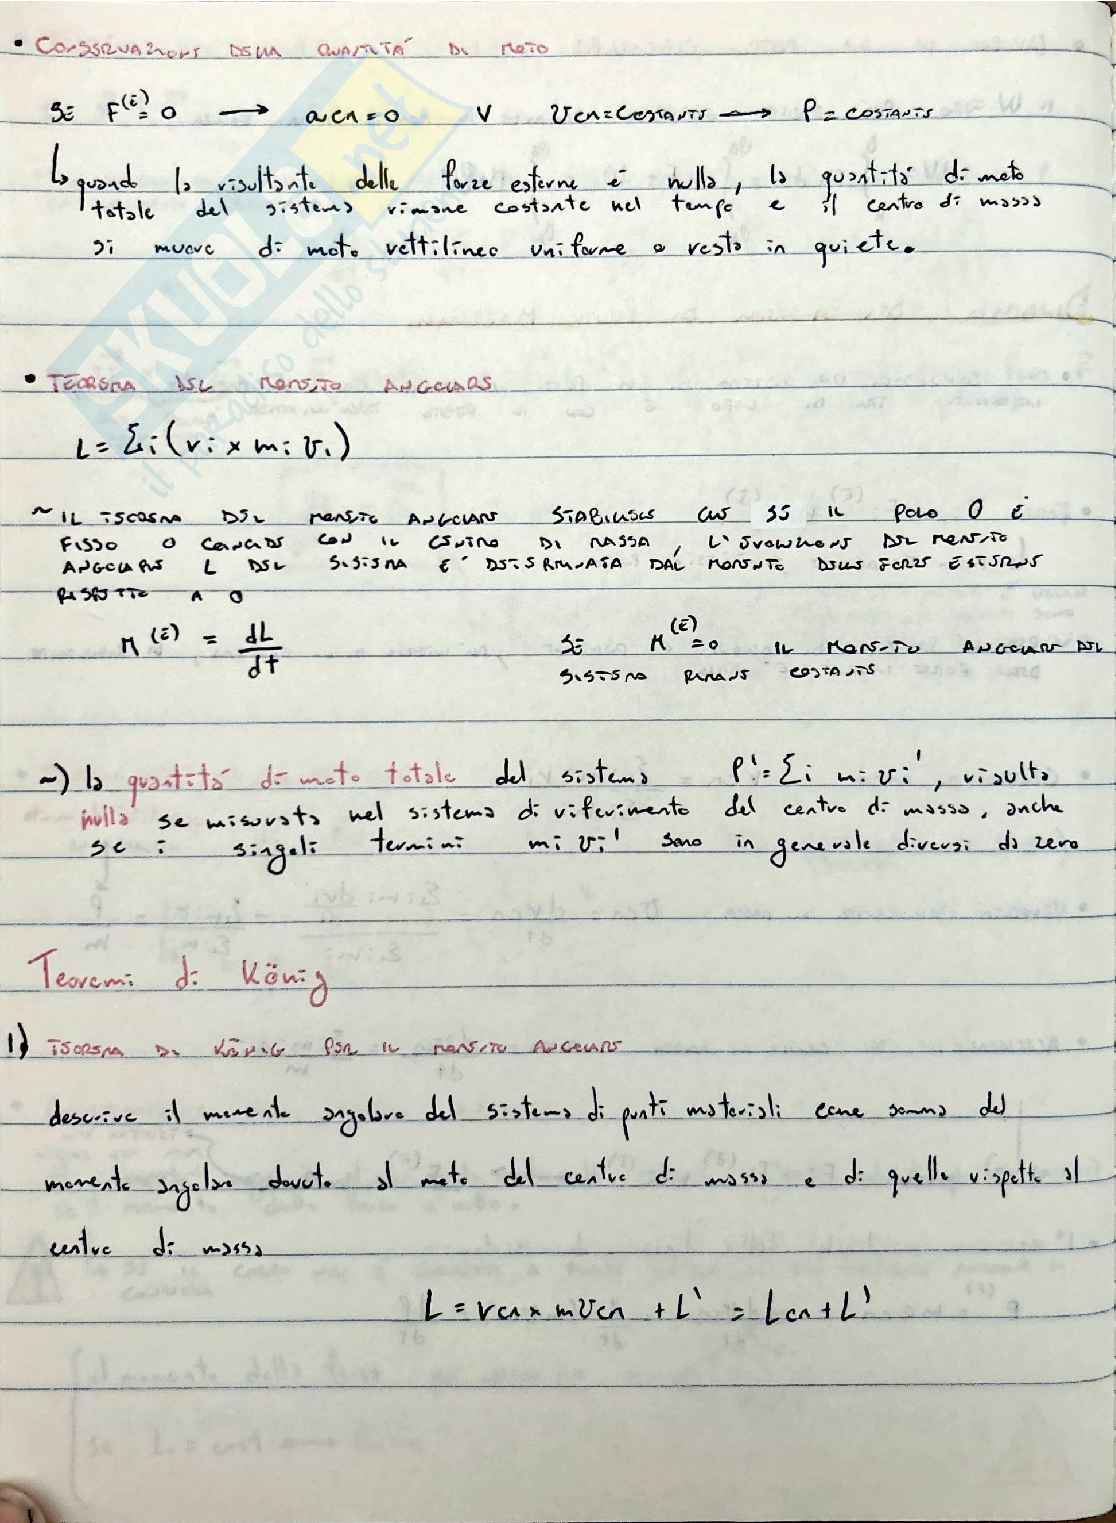 • CONSERVAZIONE DELLA QUANTITÁ DI MOTO
SE F^(E) = 0 → aCM = 0 V VCM = COSTANTE → P = COSTANTE
↳ quando la risultante delle forze esterne é nulla, la quantitá di moto
totale del sistema rimane costante nel tempo e il centro di massa
si muove di moto rettilineo uniforme o resta in quiete.
• TEOREMA DEL MOMENTO ANGOLARE
L = Σi (ri × mi vi)
~ IL TEOREMA DEL MOMENTO ANGOLARE STABILISCE CHE SE IL POLO O É
FISSO O COINCIDE CON IL CENTRO DI MASSA, L'EVOLUZIONE DEL MOMENTO
ANGOLARE L DEL SISTEMA E' DETERMINATA DAL MOMENTO DELLE FORZE ESTERNE
RISPETTO A O
M^(E) = dL/dt
SE M^(E) = 0 IL MOMENTO ANGOLARE DEL
SISTEMA RIMANE COSTANTE
~) la quantitá di moto totale del sistema P' = Σi mi vi', risulta
nulla se misurata nel sistema di riferimento del centro di massa, anche
se i singoli termini mi vi' sono in generale diversi da zero
Teoremi di König
1) TEOREMA DI KÖNIG PER IL MOMENTO ANGOLARE
descrive il momento angolare del sistema di punti materiali come somma del
momento angolare dovuto al moto del centro di massa e di quello rispetto al
centro di massa
L = rCM × m vCM + L' = LCM + L'
SKUOLA.net